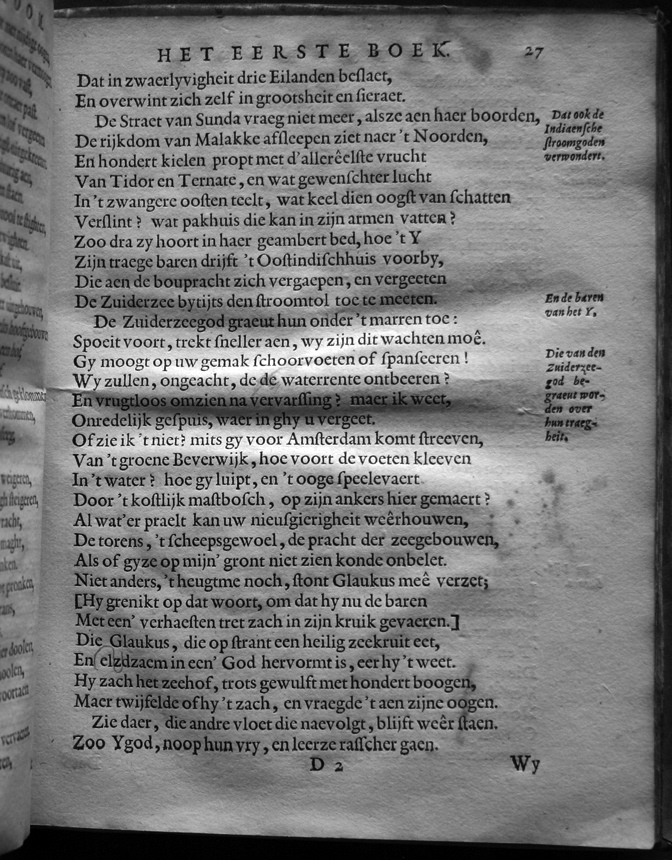 HET EERSTE BOEK. 27
Dat in zwaerlyvigheit drie Eilanden beslaet,
En overwint zich zelf in grootsheit en sieraet.
De Straet van Sunda vraeg niet meer, alsze aen haer boorden,
De rijkdom van Malakke afsleepen ziet naer 't Noorden,
En hondert kielen propt met d'allerêelste vrucht
Van Tidor en Ternate, en wat gewenschter lucht
In 't zwangere oosten teelt, wat keel dien oogst van schatten
Verslint? wat pakhuis die kan in zijn armen vatten?
Zoo dra zy hoort in haer geambert bed, hoe 't Y
Zijn traege baren drijft 't Oostindischhuis voorby,
Die aen de boupracht zich vergaepen, en vergeeten
De Zuiderzee bytijts den stroomtol toe te meeten.
De Zuiderzeegod graeut hun onder 't marren toe:
Spoeit voort, trekt sneller aen, wy zijn dit wachten moê.
Gy moogt op uw gemak schoorvoeten of spanseeren!
Wy zullen, ongeacht, de de waterrente ontbeeren?
En vrugtloos omzien na vervarssing? maer ik weet,
Onredelijk gespuis, waer in ghy u vergeet.
Of zie ik 't niet? mits gy voor Amsterdam komt streeven,
Van 't groene Beverwijk, hoe voort de voeten kleeven
In 't water? hoe gy luipt, en 't ooge speelevaert
Door 't kostlijk mastbosch, op zijn ankers hier gemaert?
Al wat'er praelt kan uw nieusgierigheit weêrhouwen,
De torens, 't scheepsgewoel, de pracht der zeegebouwen,
Als of gyze op mijn' gront niet zien konde onbelet.
Niet anders, 't heugtme noch, stont Glaukus meê verzet;
[Hy grenikt op dat woort, om dat hy nu de baren
Met een' verhaesten tret zach in zijn kruik gevaeren.]
Die Glaukus, die op strant een heilig zeekruit eet,
En elzdzaem in een' God hervormt is, eer hy 't weet.
Hy zach het zeehof, trots gewulft met hondert boogen,
Maer twijfelde of hy 't zach, en vraegde 't aen zijne oogen.
Zie daer, die andre vloet die naevolgt, blijft weêr staen.
Zoo Ygod, noop hun vry, en leerze rasscher gaen.
D 2 Wy
Dat ook de
Indiaensche
stroomgoden
verwondert.
En de baren
van het Y,
Die van den
Zuiderzee-
god be-
graeut wor-
den over
hun traeg-
heit.